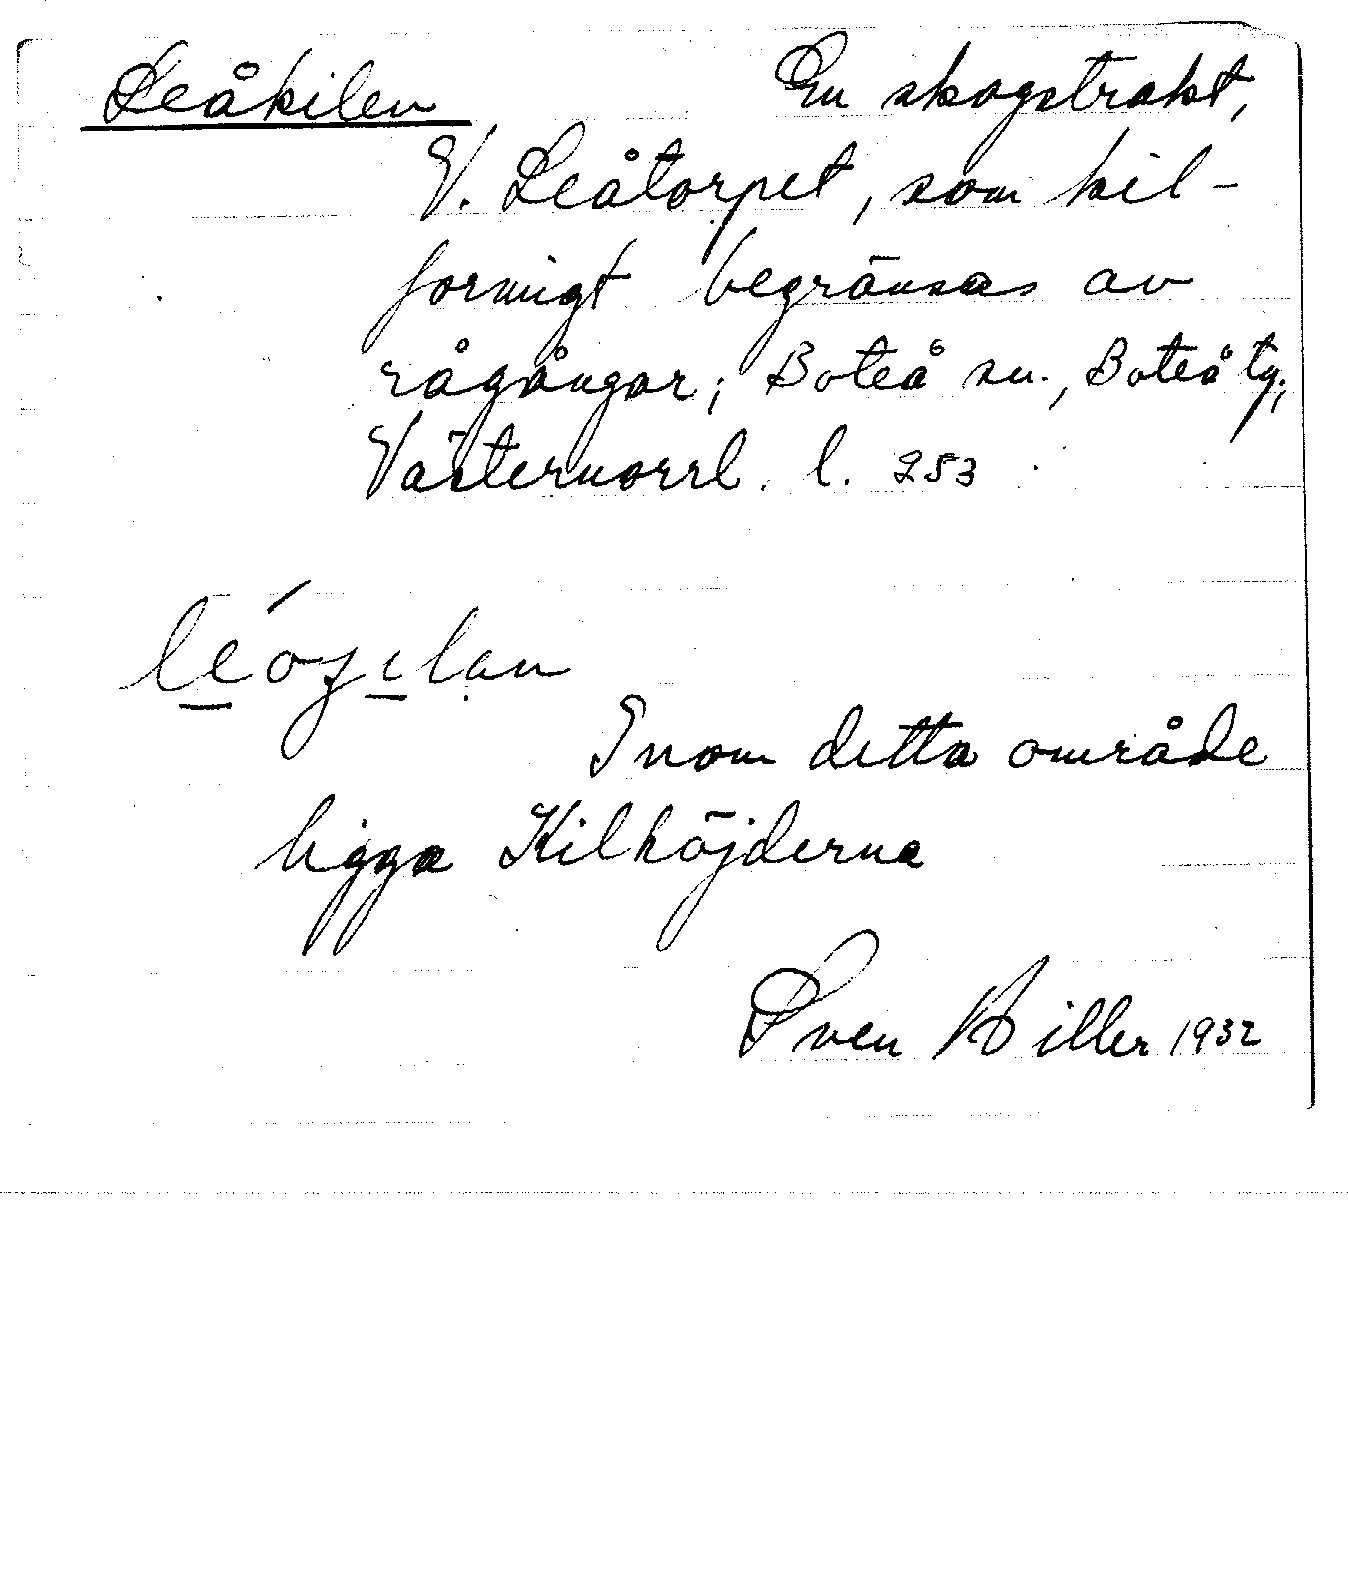 Leåkilen En skogstrakt,
V. Leåtorpet, som kil-
formigt begränsas av
rågångar; Boteå sn., Boteå tg.,
Västernorrl. l. 253
Inom detta område
ligga Kilhöjderna
Sven Hiller 1932